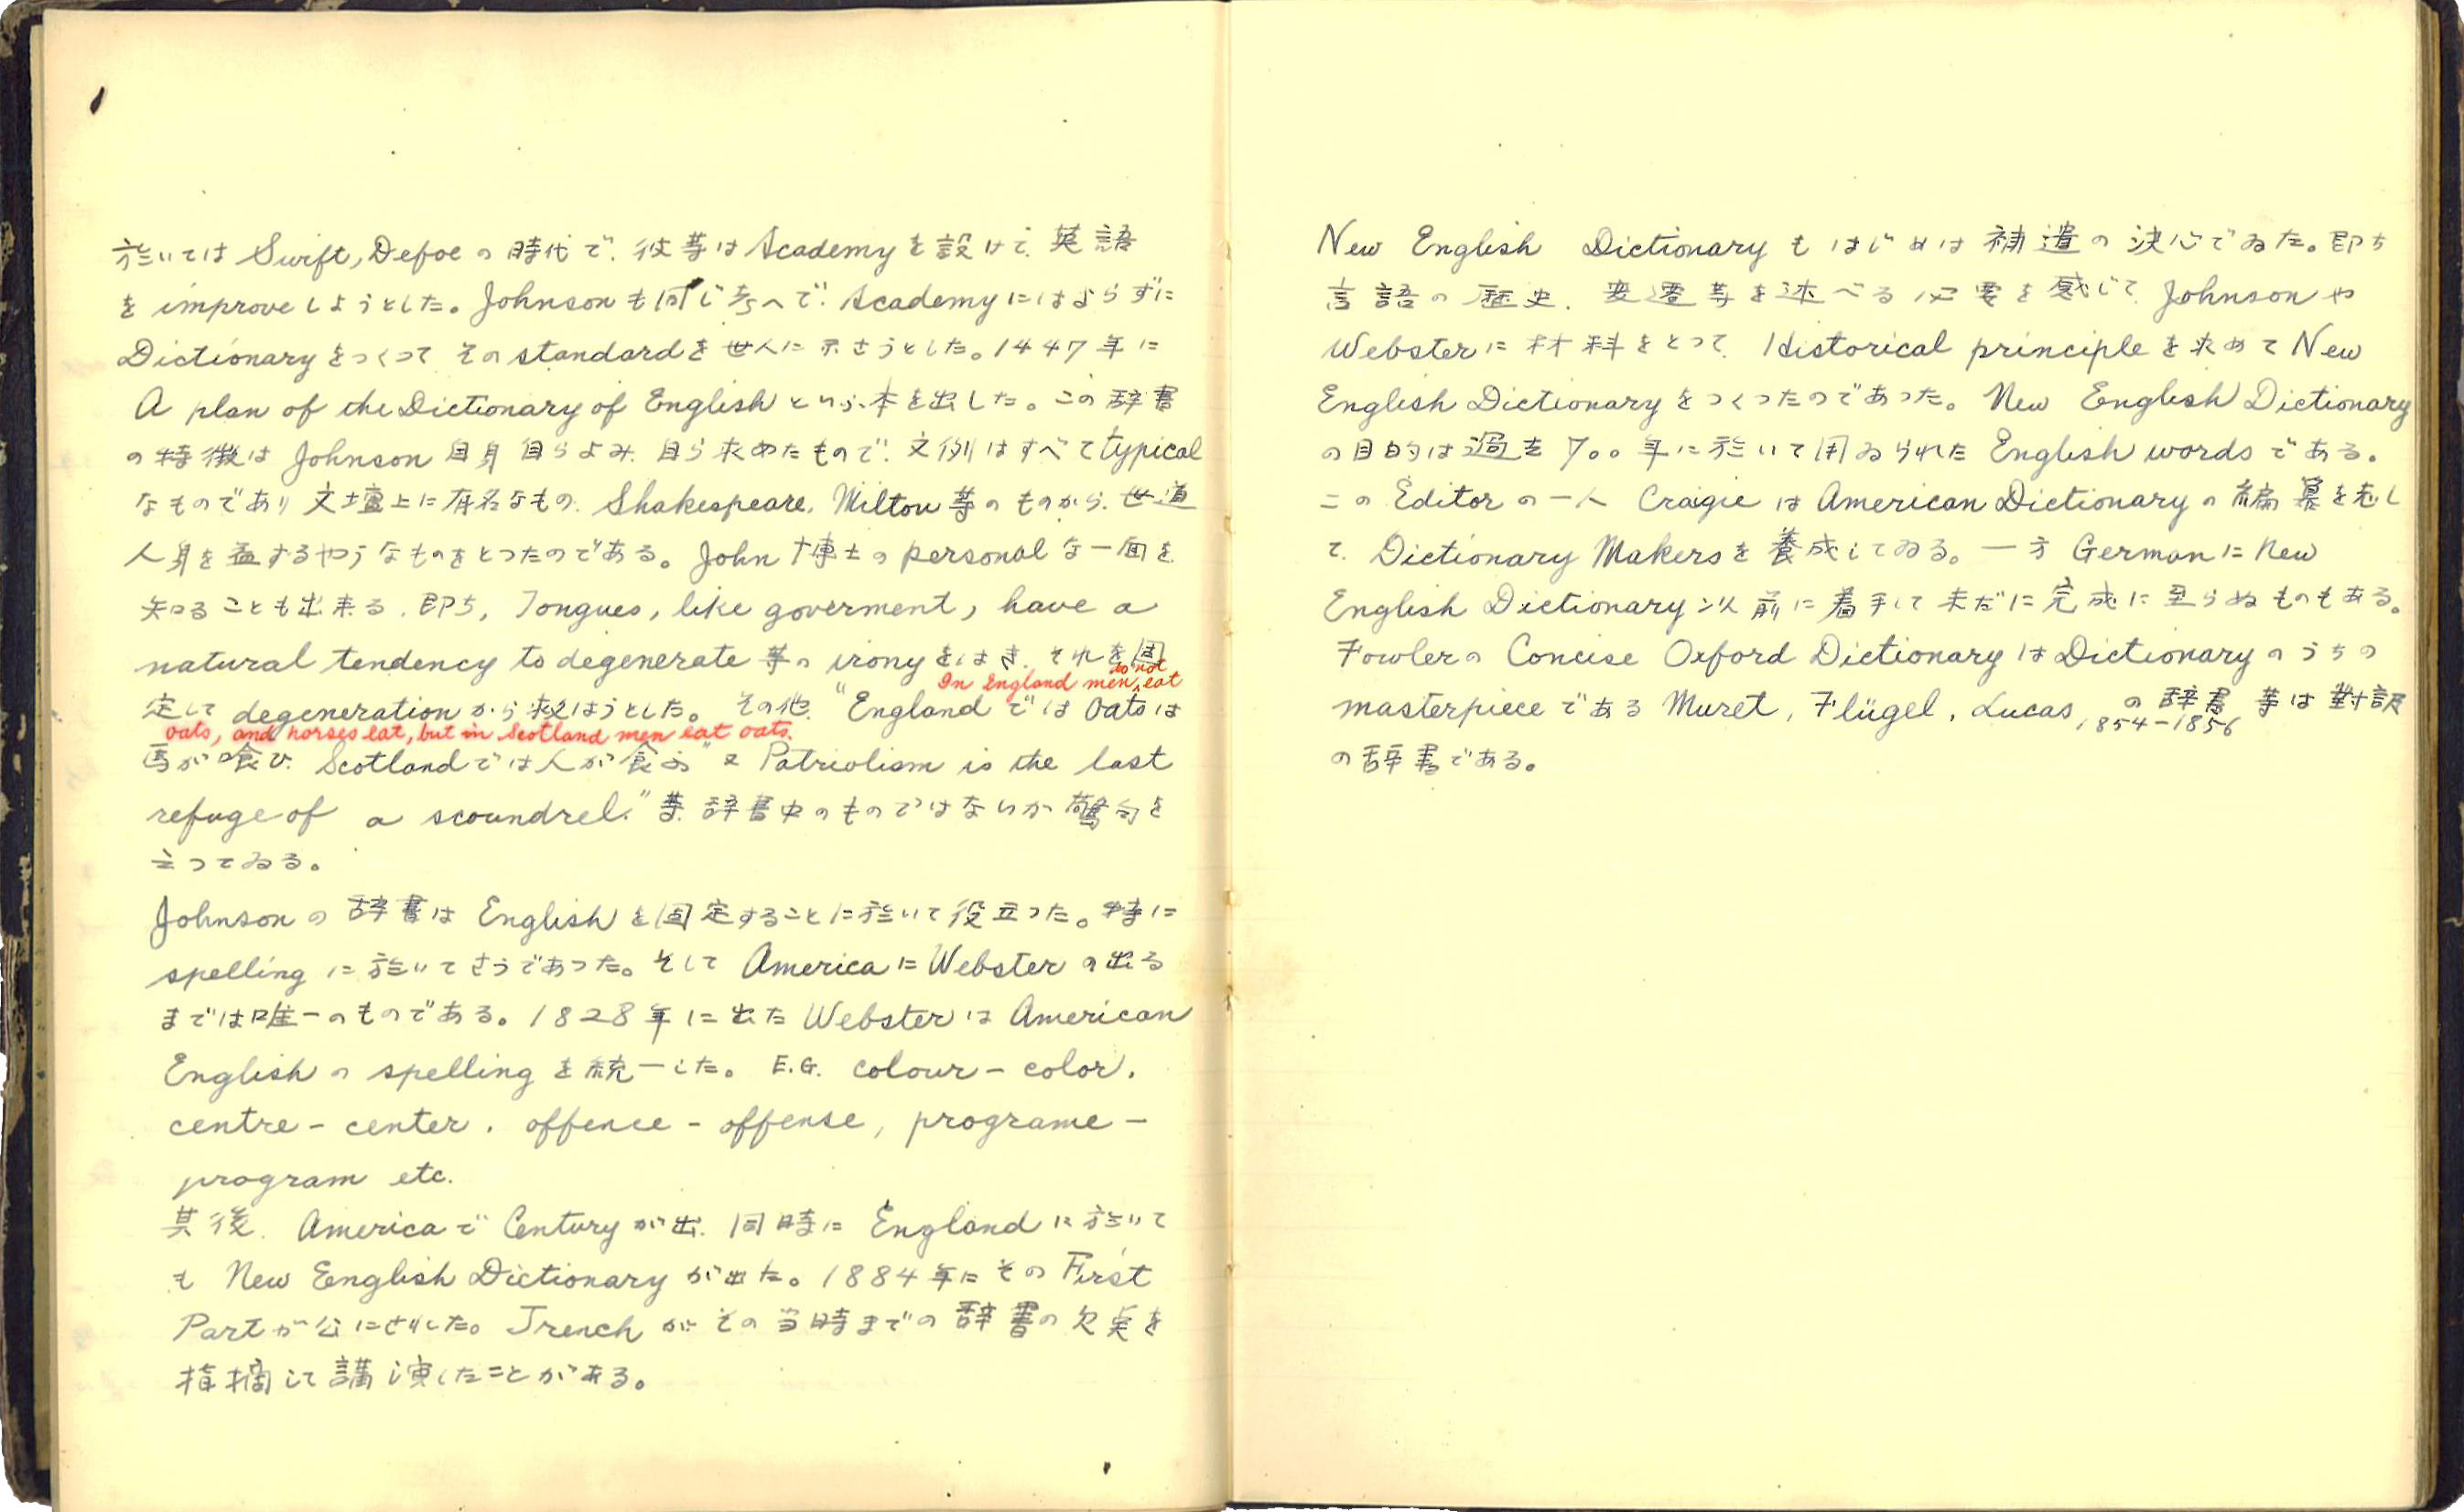 於いては Swift, Defoe の時代で、彼等は Academy を設けて、英語
を improve しようとした。Johnson も同じ考へで、Academy にはよらずに
Dictionary をつくつて その standard を世人に示さうとした。1447年に
A plan of the Dictionary of English といふ本を出した。この辞書
の特徴は Johnson 自身 自らよみ、自ら求めたもので、文例はすべて typical
なものであり 文壇上に有名なもの、Shakespeare, Milton 等のものから、世道
人身を益するやうなものをとつたのである。John 博士の personal な一面を
知ることも出来る、即ち, Tongues, like goverment, have a
natural tendency to degenerate 等の irony をはき、それを固
In England men do not eat
定して degeneration から救はうとした。その他、"England では Oats は
oats, and horses eat, but in Scotland men eat oats.
馬が喰ひ Scotland では人が食ふ" 又 Patriotism is the last
refuge of a scoundrel." 等、辞書中のものではないが 警句を
云つてゐる。
Johnson の 辞書は English を固定することに於いて役立つた。特に
spelling に於いてさうであつた。そして America に Webster の出る
までは唯一のものである。1828年に出た Webster は American
English の spelling を統一した。E.G. colour - color.
centre - center. offence - offense, programe -
program etc.
其後、America で Century が出、同時に England に於いて
も New Eenglish Dictionary が出た。1884年にその First
Part が公にされた。Trench が その当時までの辞書の欠点を
指摘して講演したことがある。
New English Dictionary も はじめは 補遺の決心でゐた。即ち
言語の歴史、変遷等を述べる必要を感じて Johnson や
Webster に材料をとつて、Historical principle を求めて New
English Dictionary をつくつたのであつた。New English Dictionary
の目的は過去700年に於いて用ゐられた English words である。
この Editor の一人 Craigie は American Dictionary の編纂を志し
て、Dictionary Makers を養成してゐる。一方 German に New
English Dictionary 以前に着手して未だに完成に至らぬものもある。
Fowler の Concise Oxford Dictionary は Dictionary のうちの
masterpiece である Muret, Flügel, Lucas, の辞書 等は對訳
1854-1856
の辞書である。